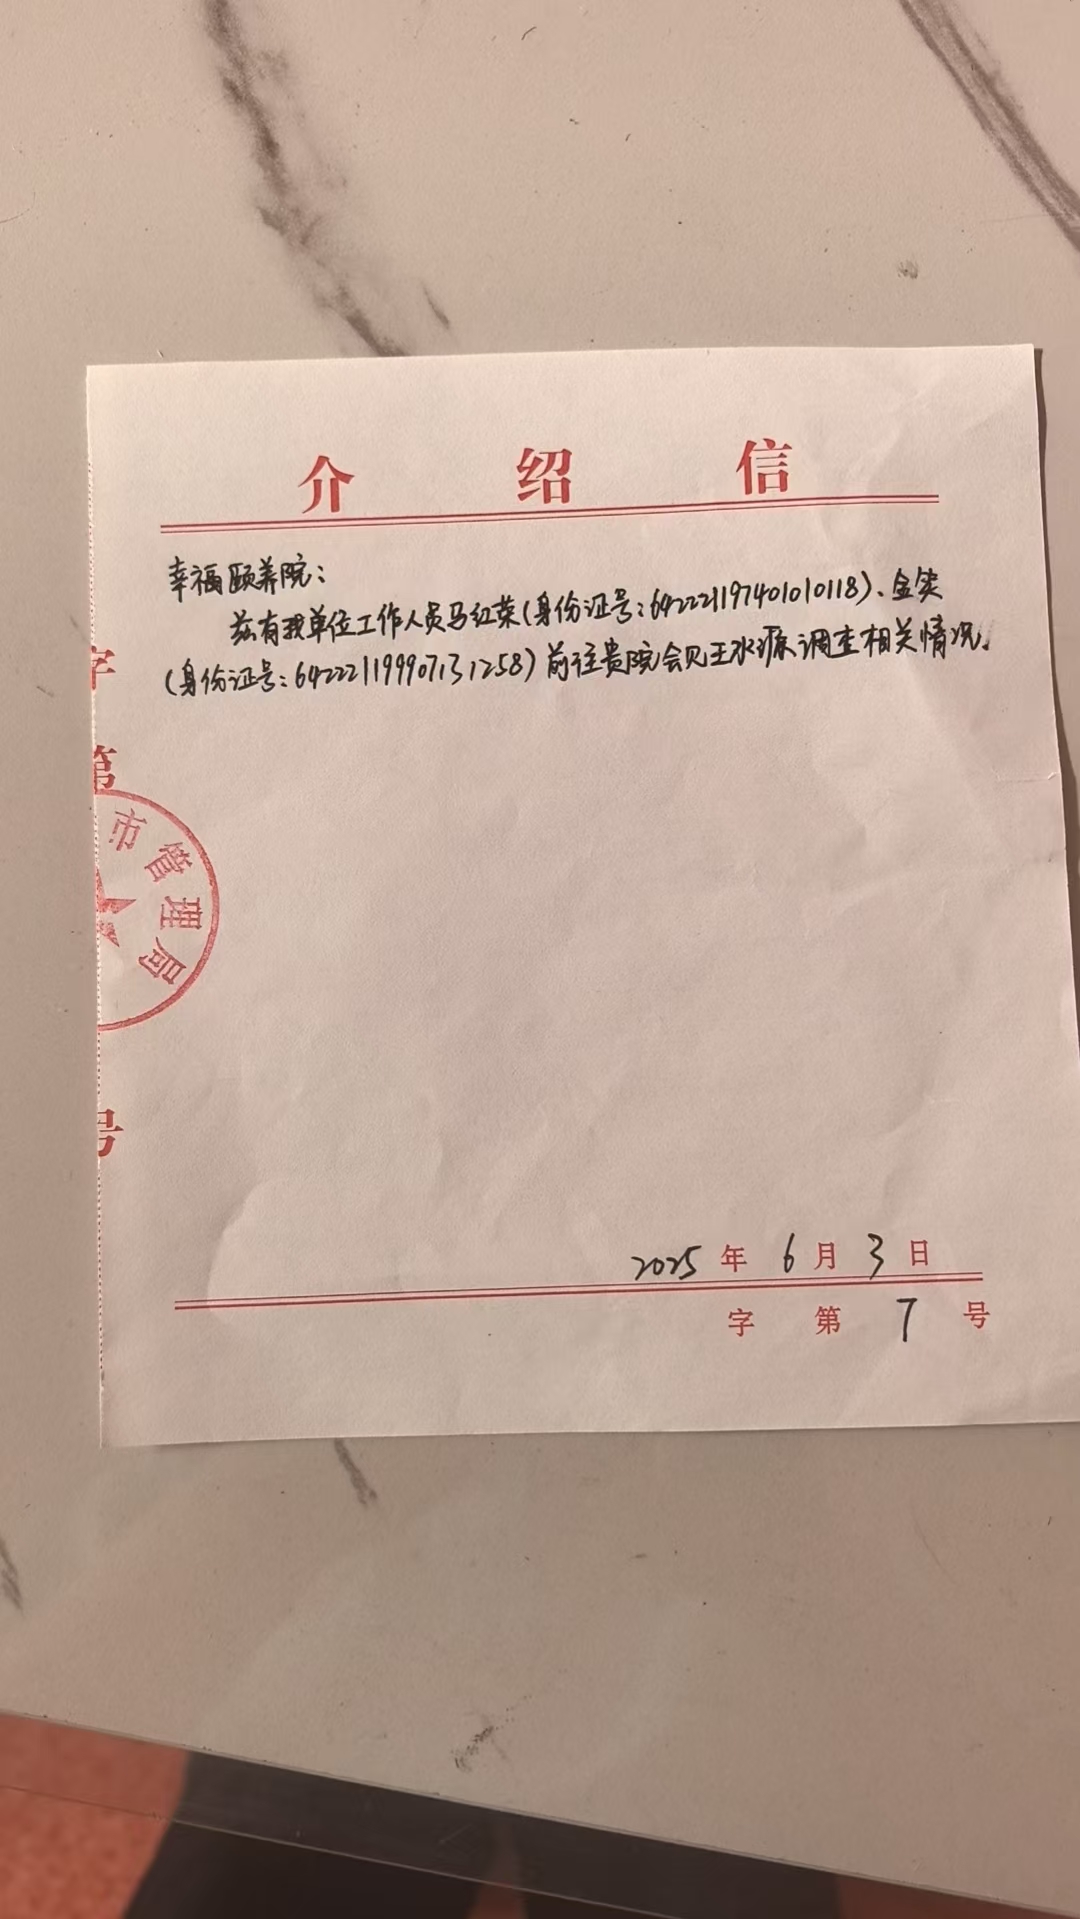 介绍信
幸福颐养院：
兹有我单位工作人员马红荣（身份证号：642221197401010118）、金奖
（身份证号：642221199907131258）前往贵院会见王水源调查相关情况。
字
第
市管理局
号
2025年6月3日
字第7号